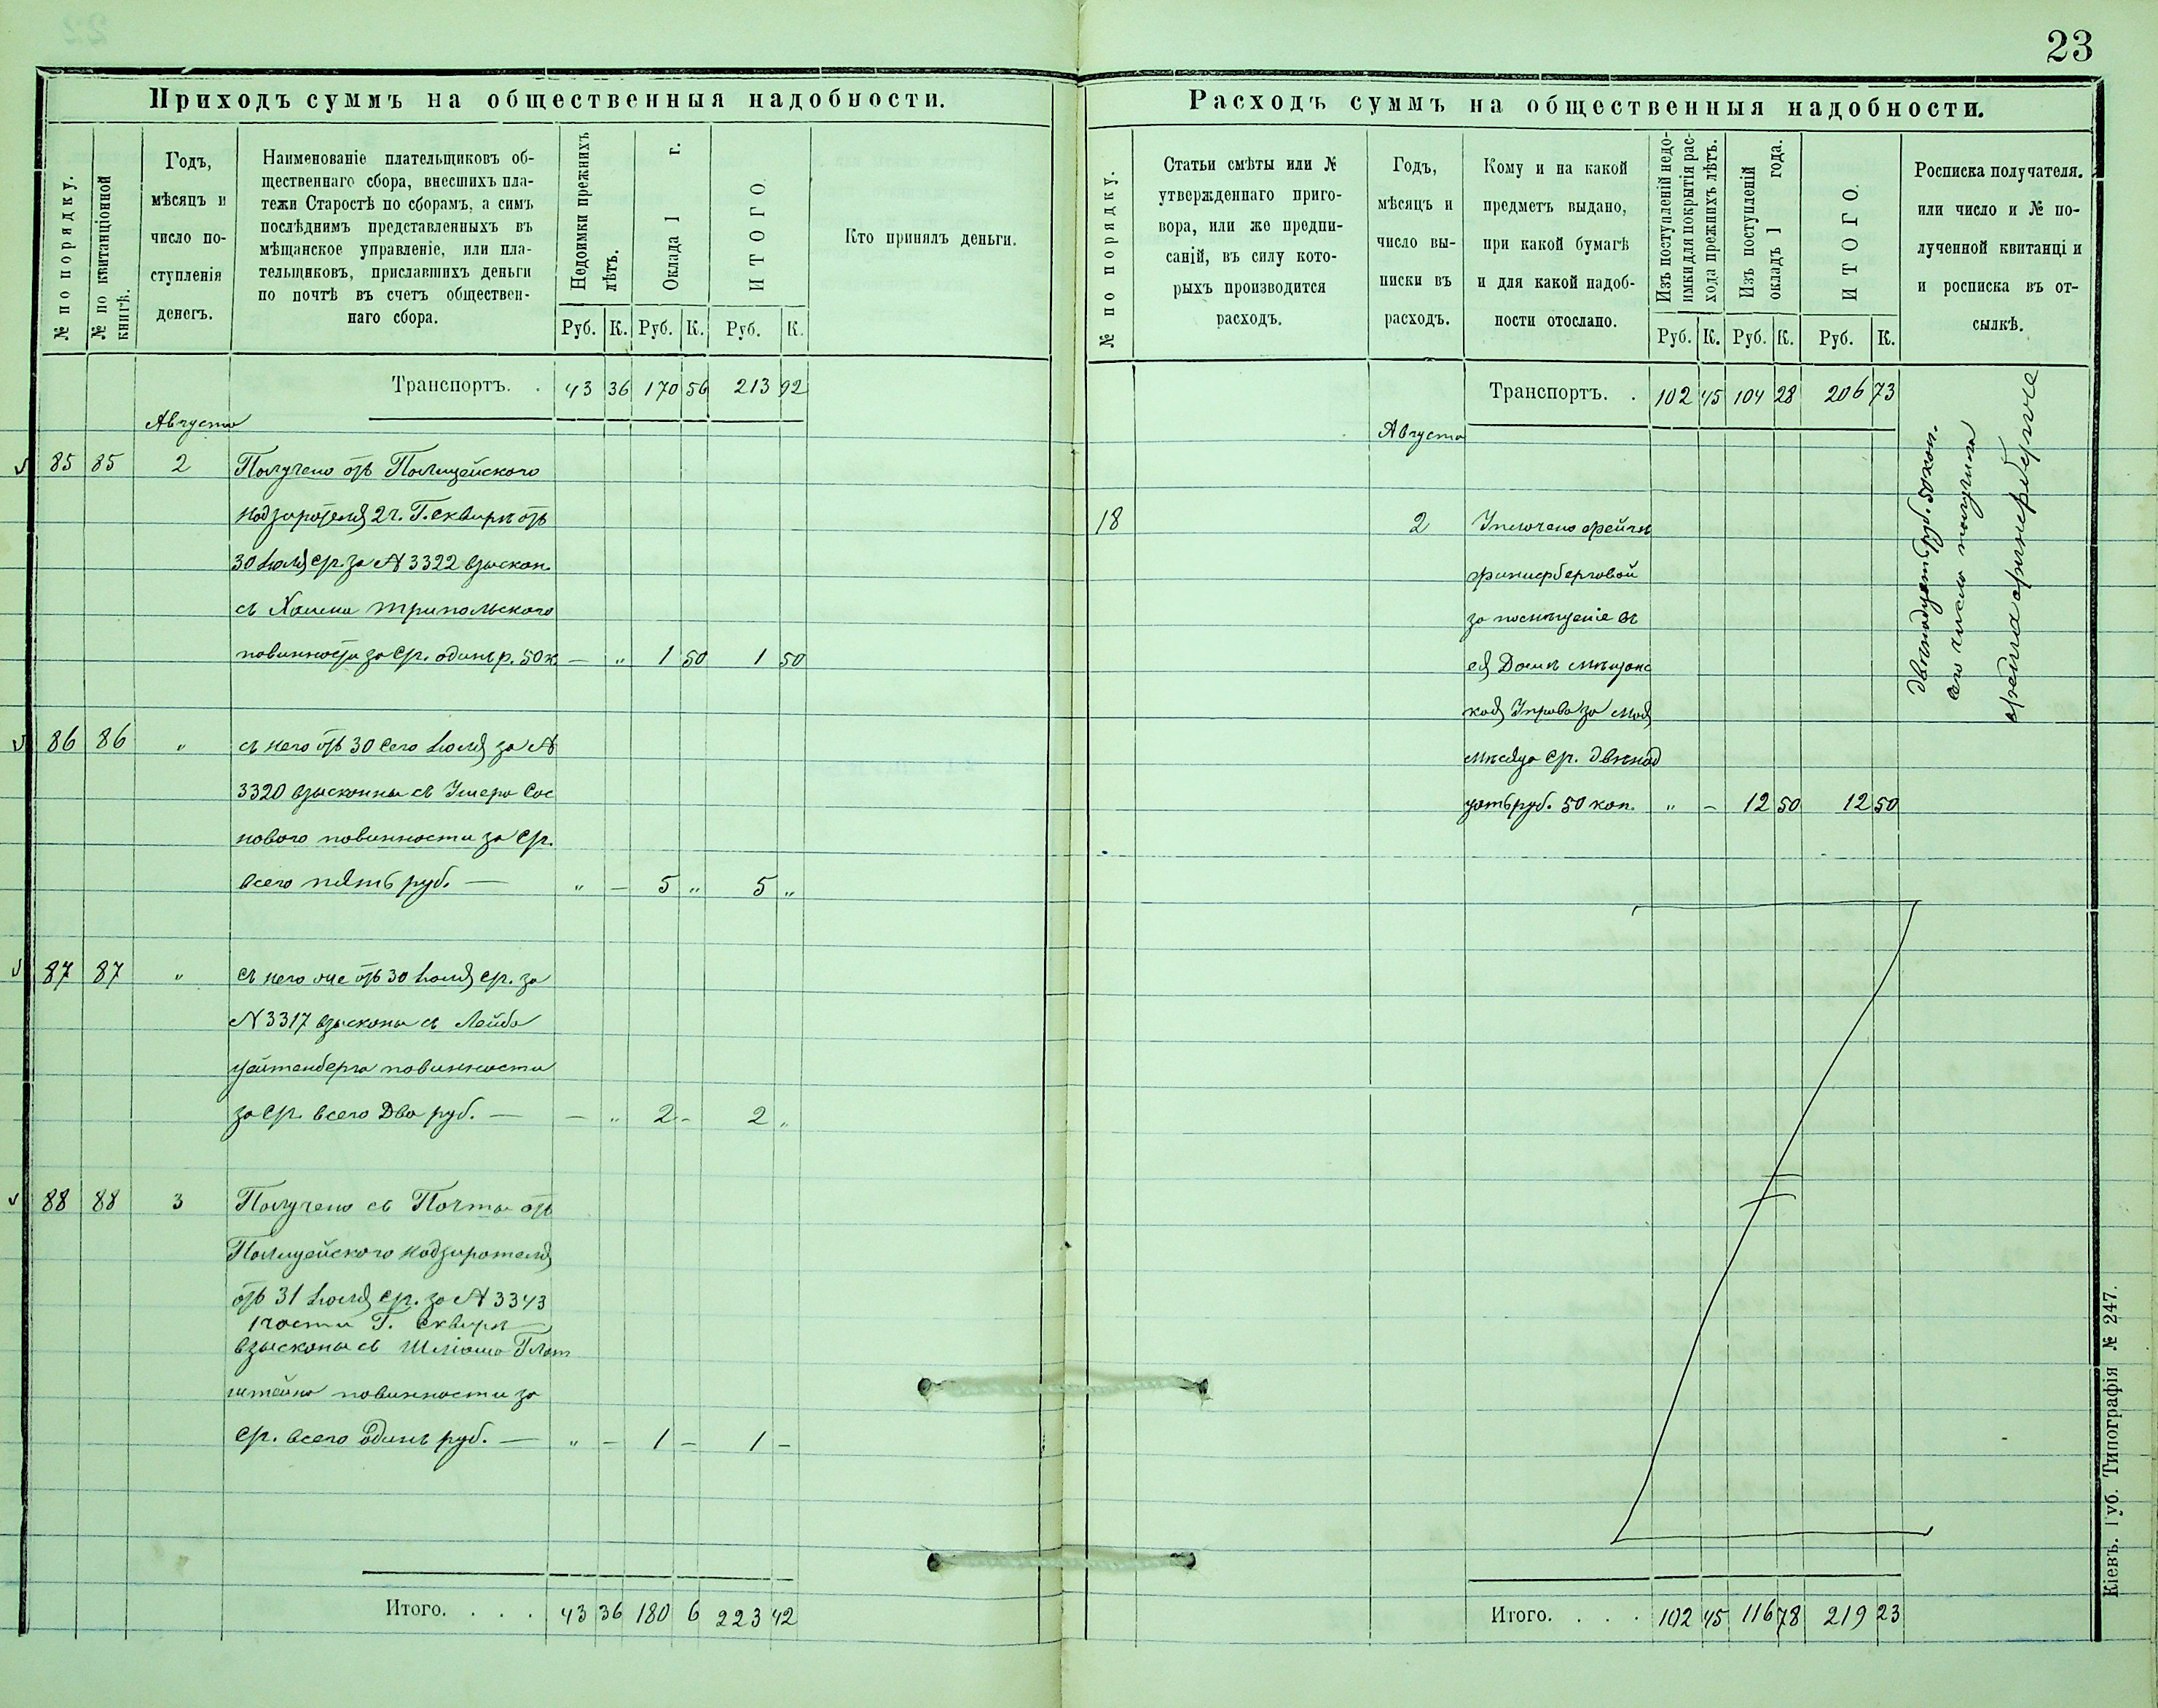 23
Приходъ суммъ на общественныя надобности.
№ по порядку.
№ по квитанціонной
книгѣ.
Годъ,
мѣсяцъ и
число по-
ступленія
денегъ.
Наименованіе плательщиковъ об-
щественнаго сбора, внесшихъ пла-
тежи Старостѣ по сборамъ, а симъ
послѣднимъ представленныхъ въ
мѣщанское управленіе, или пла-
тельщиковъ, приславшихъ деньги
по почтѣ въ счетъ обществен-
наго сбора.
Недоимки прежнихъ
лѣтъ.
Оклада 1 г.
ИТОГО.
Кто принялъ деньги.
Руб. К. Руб. К. Руб. К.
Транспортъ. . 43 36 170 56 213 92
Августа
85 85 2 Получено отъ Полицейского
надзирателя 2 ч. Г. Сквиры отъ
30 Іюля с.г. за № 3322 взыскан.
съ Хаима Трипольского
повинности за с.г. одинъ р. 50 к. — „ 1 50 1 50
86 86 „ съ него отъ 30 сего Іюля за №
3320 взысканны съ Умера Сос
нового повинности за с.г.
всего пять руб. — „ — 5 „ 5 „
87 87 „ съ него же отъ 30 Іюля с.г. за
№ 3317 взысканы съ Лейба
Цайтенберга повинности
за с.г. всего Два руб. — — „ 2 - 2 „
88 88 3 Получено съ Почты отъ
Полицейского надзирателя
отъ 31 Іюля с.г. за № 3343
1 части Г. Сквиры
взысканы съ Шліома Глот
штейна повинности за
с.г. всего Одинъ руб. — „ — 1 — 1 —
Итого. . . . 43 36 180 6 223 42
Расходъ суммъ на общественныя надобности.
№ по порядку.
Статьи смѣты или №
утвержденнаго приго-
вора, или же предпи-
саній, въ силу кото-
рыхъ производится
расходъ.
Годъ,
мѣсяцъ и
число вы-
писки въ
расходъ.
Кому и на какой
предметъ выдано,
при какой бумагѣ
и для какой надоб-
ности отослано.
Изъ поступленій недо-
имки для покрытія рас-
хода прежнихъ лѣтъ.
Изъ поступленій
окладъ 1 года.
ИТОГО.
Росписка получателя.
или число и № по-
лученной квитанці и
и росписка въ от-
сылкѣ.
Руб. К. Руб. К. Руб. К.
Транспортъ. . 102 45 104 28 206 73
Августа
18 2 Уплочено Фейги
Финкерберговой
за помѣщеніе въ
ея Домѣ мѣщанс
кая Управа за май
мѣсяца с.г. двѣнад
цать руб. 50 коп. „ — 12 50 12 50
двѣнадцать руб. 50 коп.
сего числа получила
Итого. . . . 102 45 116 78 219 23
Кіевъ. Губ. Типографія № 247.